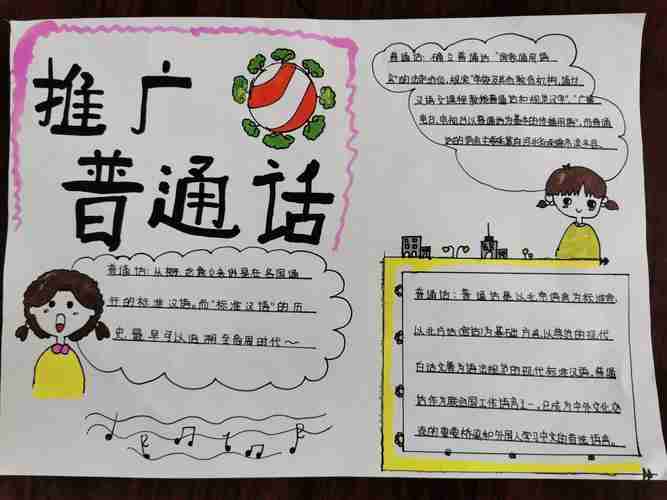 推广
普通话
普通话:确立普通话"国家通用语
言"的法定地位,规定"学校及其他教育机构,通过
汉语文课程教授普通话和规范汉字"."广播
电台,电视台以普通话为基本的播音用语",而普通
普通话:从概念意义来讲是在各国通
行的标准汉语。而"标准汉语"的历
史最早可以追溯至东周时代~
普通话:普通话是以北京语音为标准音,
以北方话(官话)为基础方言,以典范的现代
白话文著为语法规范的现代标准汉语。普通
话作为联合国工作语言之一,已成为中外文化交
流的重要桥梁和外国人学习中文的首选语言。